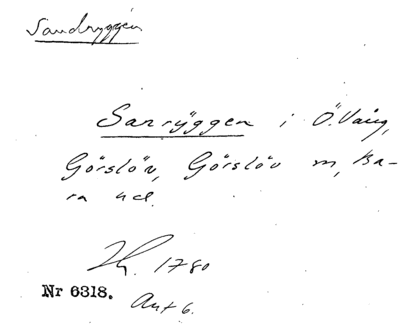 Sandryggen
Sanryggen i Ö. Vång,
Görslöv, Görslöv sn, Ba-
ra hd.
1780
Nr 6318. Akt 6.